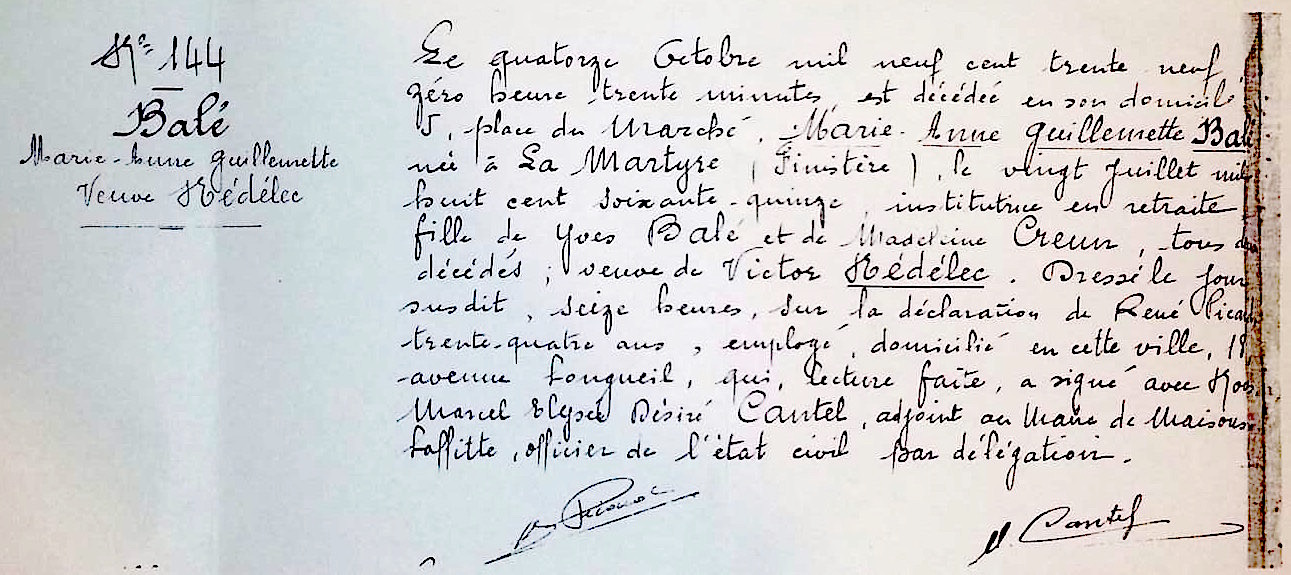 N° 144
Balé
Marie-Anne Guillemette
Veuve Hédélec
Le quatorze Octobre mil neuf cent trente neuf
zéro heure trente minutes, est décédée en son domicile
5, place du Marché, Marie-Anne Guillemette Balé
née à La Martyre (Finistère), le vingt Juillet mil
huit cent soixante-quinze, institutrice en retraite
fille de Yves Balé et de Madeleine Creun, tous
décédés ; veuve de Victor Hédélec. Dressé le jour
susdit, seize heures, sur la déclaration de René Picard
trente-quatre ans, employé, domicilié en cette ville, 18,
avenue Longueil, qui, lecture faite, a signé avec Nous
Marcel Elysée Désiré Cantel, adjoint au Maire de Maisons-
Laffitte, officier de l'état civil par délégation.
Cantel